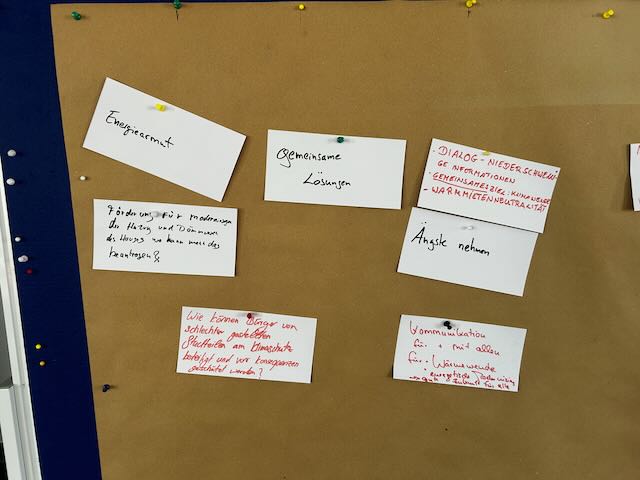 Energiearmut
Gemeinsame
Lösungen
- DIALOG - NIEDERSCHWELLI
GE INFORMATIONEN
- GEMEINSAMES ZIEL: KLIMAWENDE
- WARMMIETENNEUTRALITÄT
Förderung für
der Heizung und Dämmung
des Hauses wo kann man das
beantragen?
Ängste nehmen
Wie können Bürger von
schlechter gestellten
Stadtteilen am Klimaschutz
beteiligt und vor Konsequenzen
geschützt werden?
Kommunikation
für + mit allen
für - Wärmewende
- energetische
Zukunft für alle